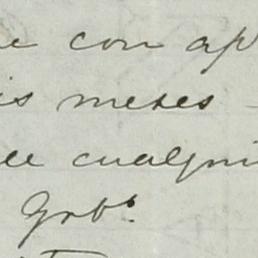 e con ap
is meses -
ee cualqui
Gobº.